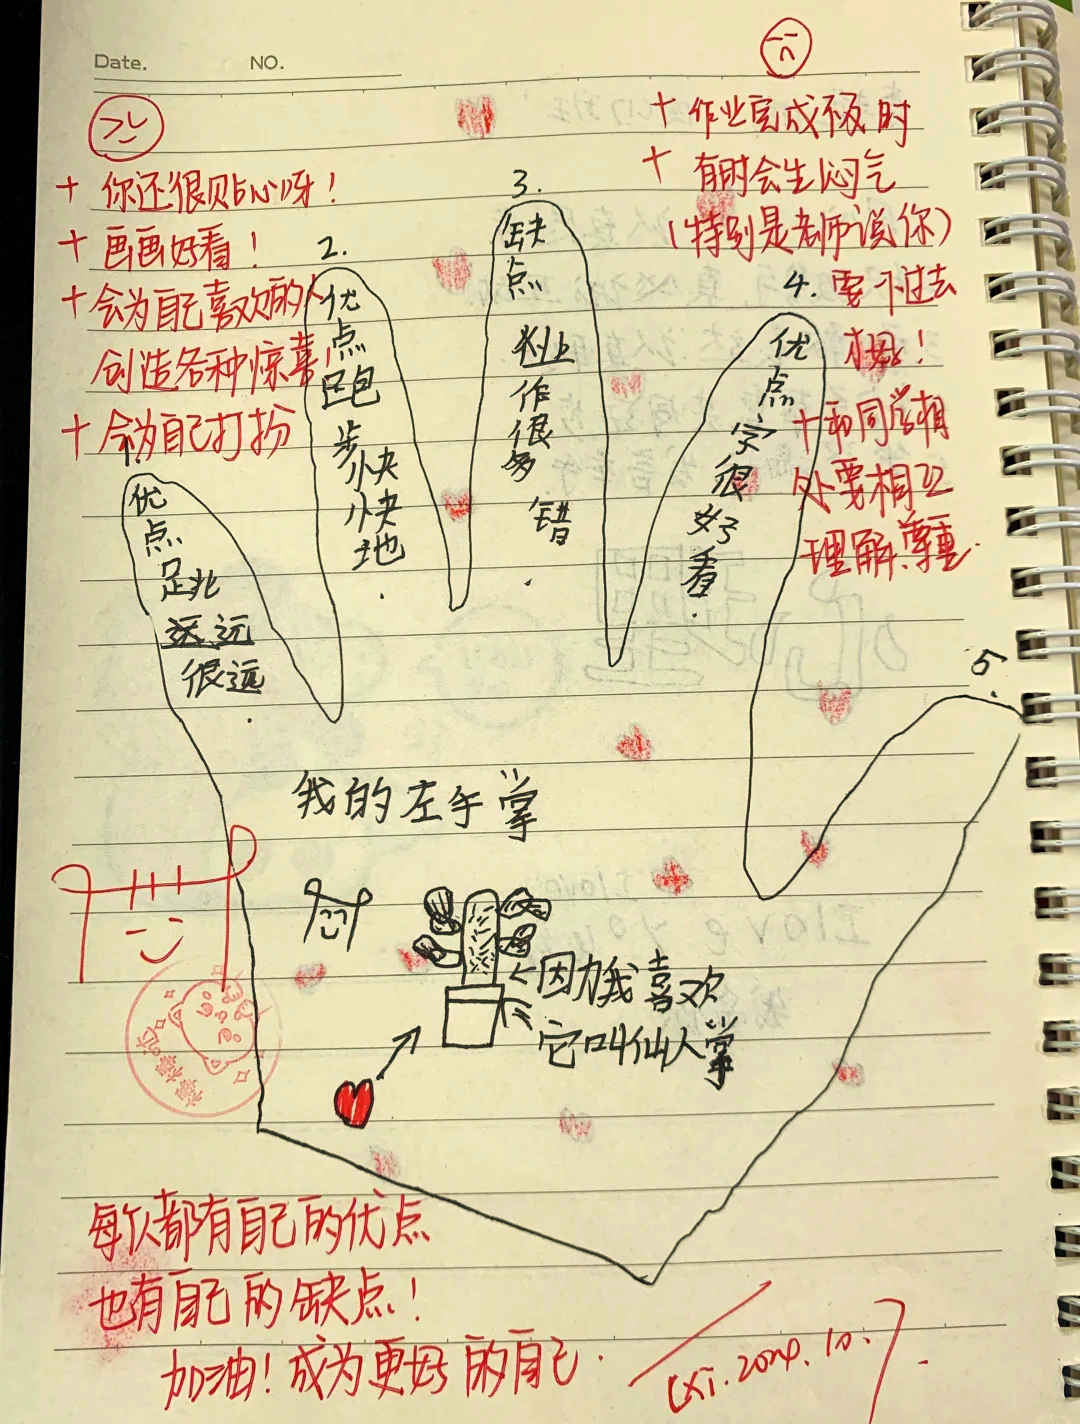 Date.
NO.
+ 你还很贴心呀！
+ 画画好看！
+ 会为自己喜欢的人
创造各种惊喜！
+ 会为自己打扮
+ 作业完成不及时
+ 有时会生闷气
（特别是老师说你）
要改过去
才好！
+ 和同学相
处要相互
理解、尊重.
1.
优
点
足兆
远远
很远
.
2.
优
点
跑
步
快
快
地
.
3.
缺
点
作
很
多
错
.
4.
优
点
字
很
好
看
.
5.
我的左手掌
←因为我喜欢
它叫仙人掌
每个人都有自己的优点
也有自己的缺点！
加油！成为更好的自己.
2024.10.7.